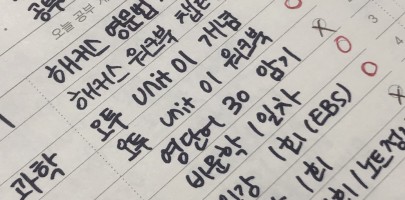 오늘 공부
공부
해커스 영문법
해커스 워크북 챕터
오투 unit 01 개념
오투 unit 01 워크북
영단어 30 암기
비문학 1일차
인강 1회 (EBS)
1회
과학
3
4